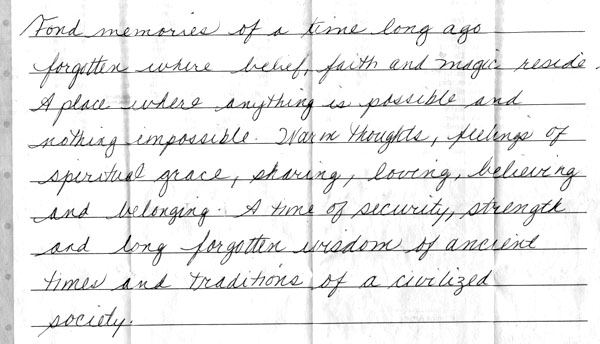 Fond memories of a time long ago
forgotten where belief, faith and magic reside.
A place where anything is possible and
nothing impossible. Warm thoughts, feelings of
spiritual grace, sharing, loving, believing
and belonging. A time of security, strength
and long forgotten wisdom of ancient
times and traditions of a civilized
society.